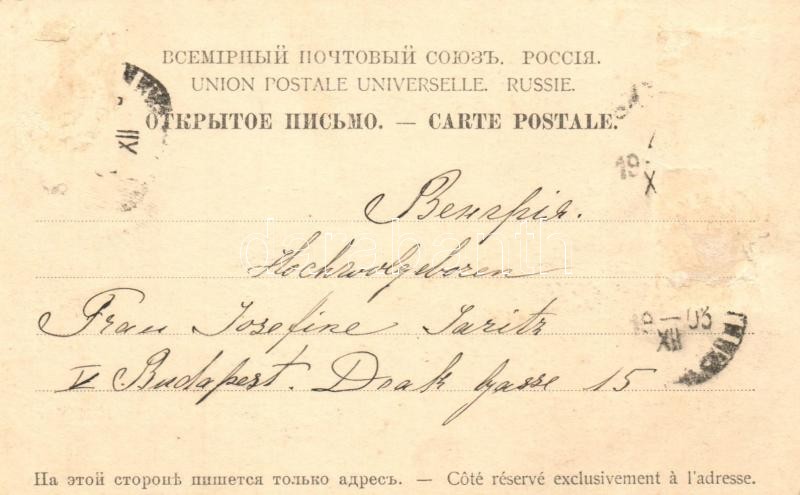 ВСЕМІРНЫЙ ПОЧТОВЫЙ СОЮЗЪ. РОССІЯ.
UNION POSTALE UNIVERSELLE. RUSSIE.
ОТКРЫТОЕ ПИСЬМО. — CARTE POSTALE.
Венгрія.
Hochwolgeboren
Frau Josefine Saritz
V Budapest. Deak Gasse 15
XII
19
X
19 — 03
XII
На этой сторонѣ пишется только адресъ. — Côté réservé exclusivement à l'adresse.